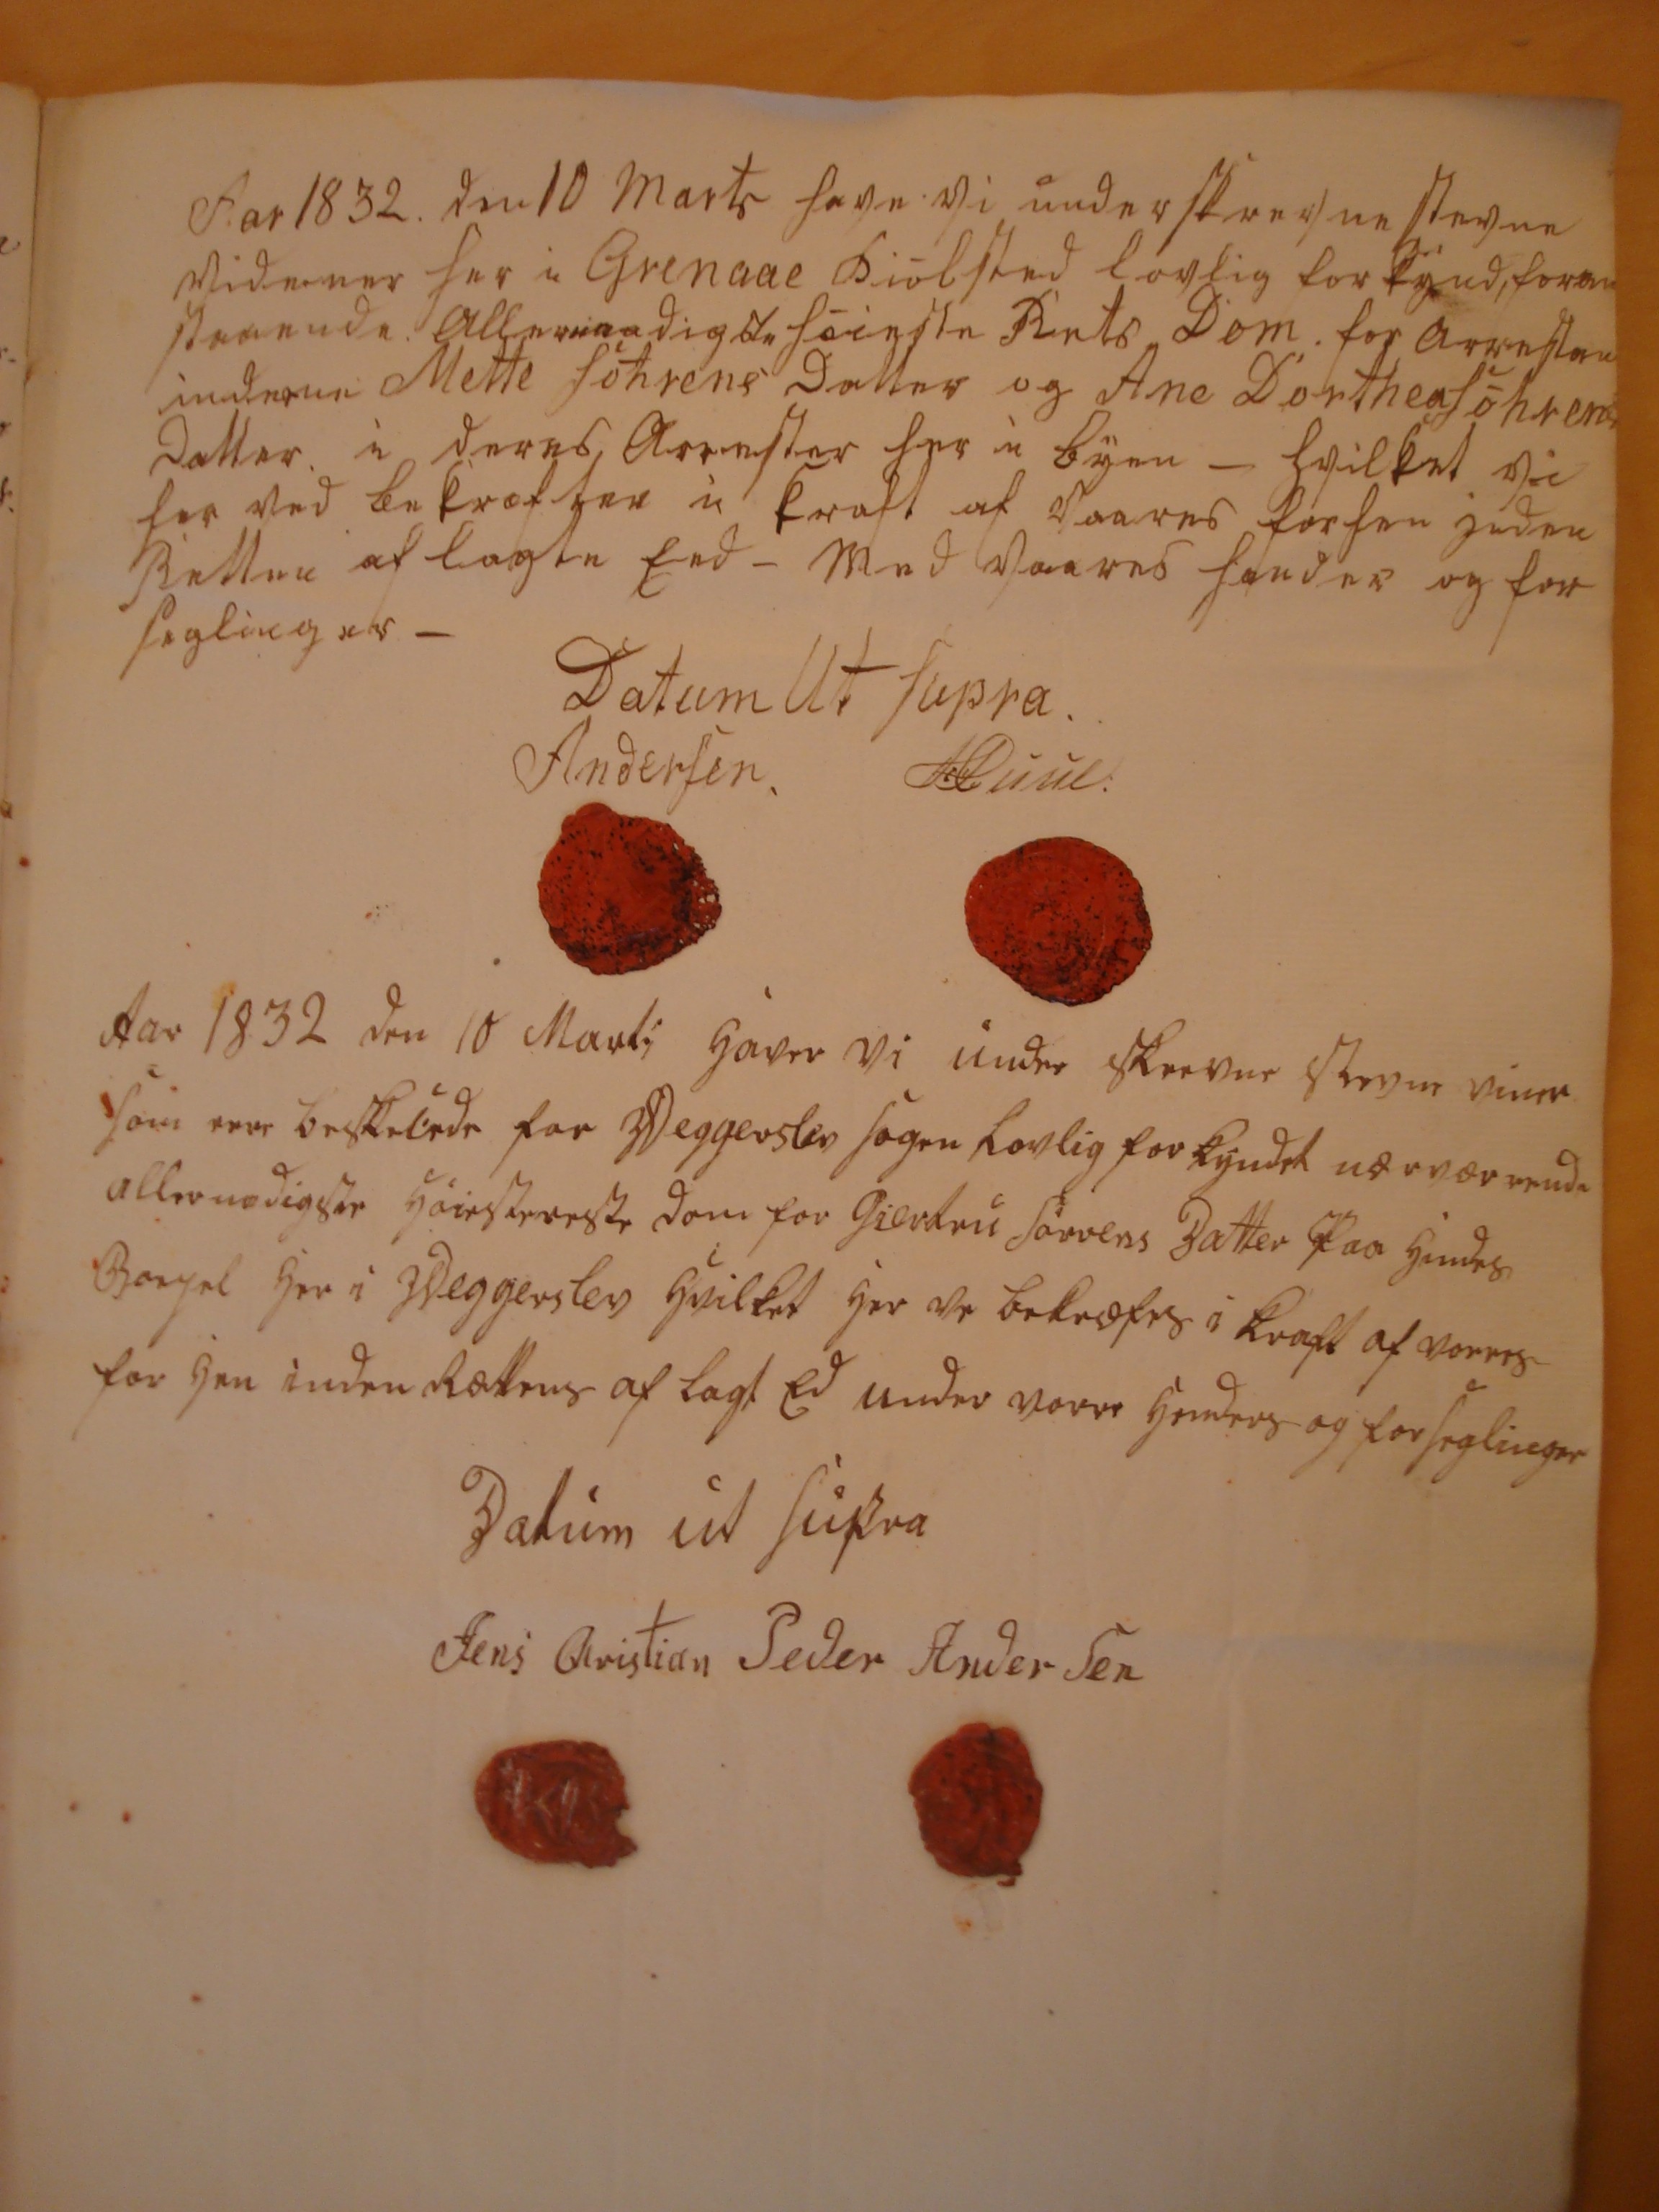 Aar 1832. den 10 Marts have vi underskrevne stevne
Videner her i Grenaae Kiøbsted lovlig forkynd, foran
staaende. Allernaadigste Høieste Rets Dom. for Arrestan
inderne Mette Söhrens Datter og Ane Dorthea Söhrens
Datter. i deres Arrester her i Byen – hvilket vi
her ved bekræfter i kraft af Vaares forhen inden
Retten aflagte Eed – Med Vaares hænder og for
seglinger –
Datum Ut supra.
Andersen. Duul.
Aar 1832 den 10 Marts Haver vi under skrevne stevne viner
som ere beskekede for Weggerslev sogn Lovlig for kyndet nærværrende
allernodigste Høiestereste dom for Giertru Sørrens Datter Paa Hindes
Boepel Her i Weggerslev Hvilket Her ve bekræfes i kraft af vorres
for Hen inden Rættens af lagt Ed under vorre Henders og forseglinger
Datum ut supra
Jens Cristian Peder Andersen